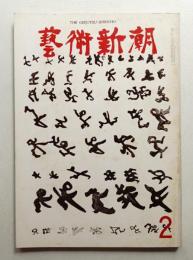 THE GEIJUTSU SHINCHO
藝術新潮
2